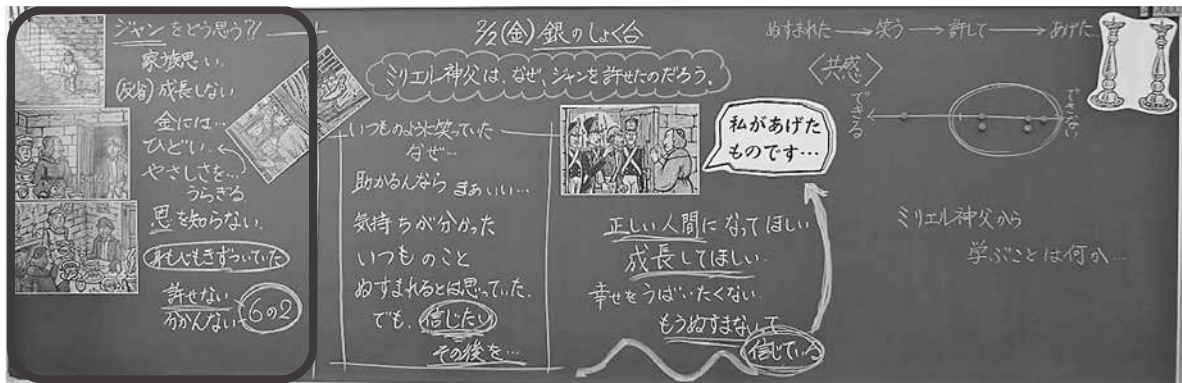 ジャンをどう思う?!
家族思い.
(反省)成長しない
金には…
ひどい.
やさしさを…
うらぎる
恩を知らない.
許せない
分かんない
6の2
2/2(金) 銀のしょく台
ミリエル神父は、なぜ、ジャンを許せたのだろう。
いつものように笑っていた
なぜ…
助かるんなら まぁいい…
気持ちが分かった
いつものこと
ぬすまれるとは思っていた.
でも、信じたい
その後を…
私があげた
ものです…
正しい人間になってほしい
成長してほしい.
幸せをうばいたくない.
もうぬすまないって
信じている
ぬすまれた→笑う→許して→あげた
〈共感〉
できる
できない
ミリエル神父から
学ぶことは何か…